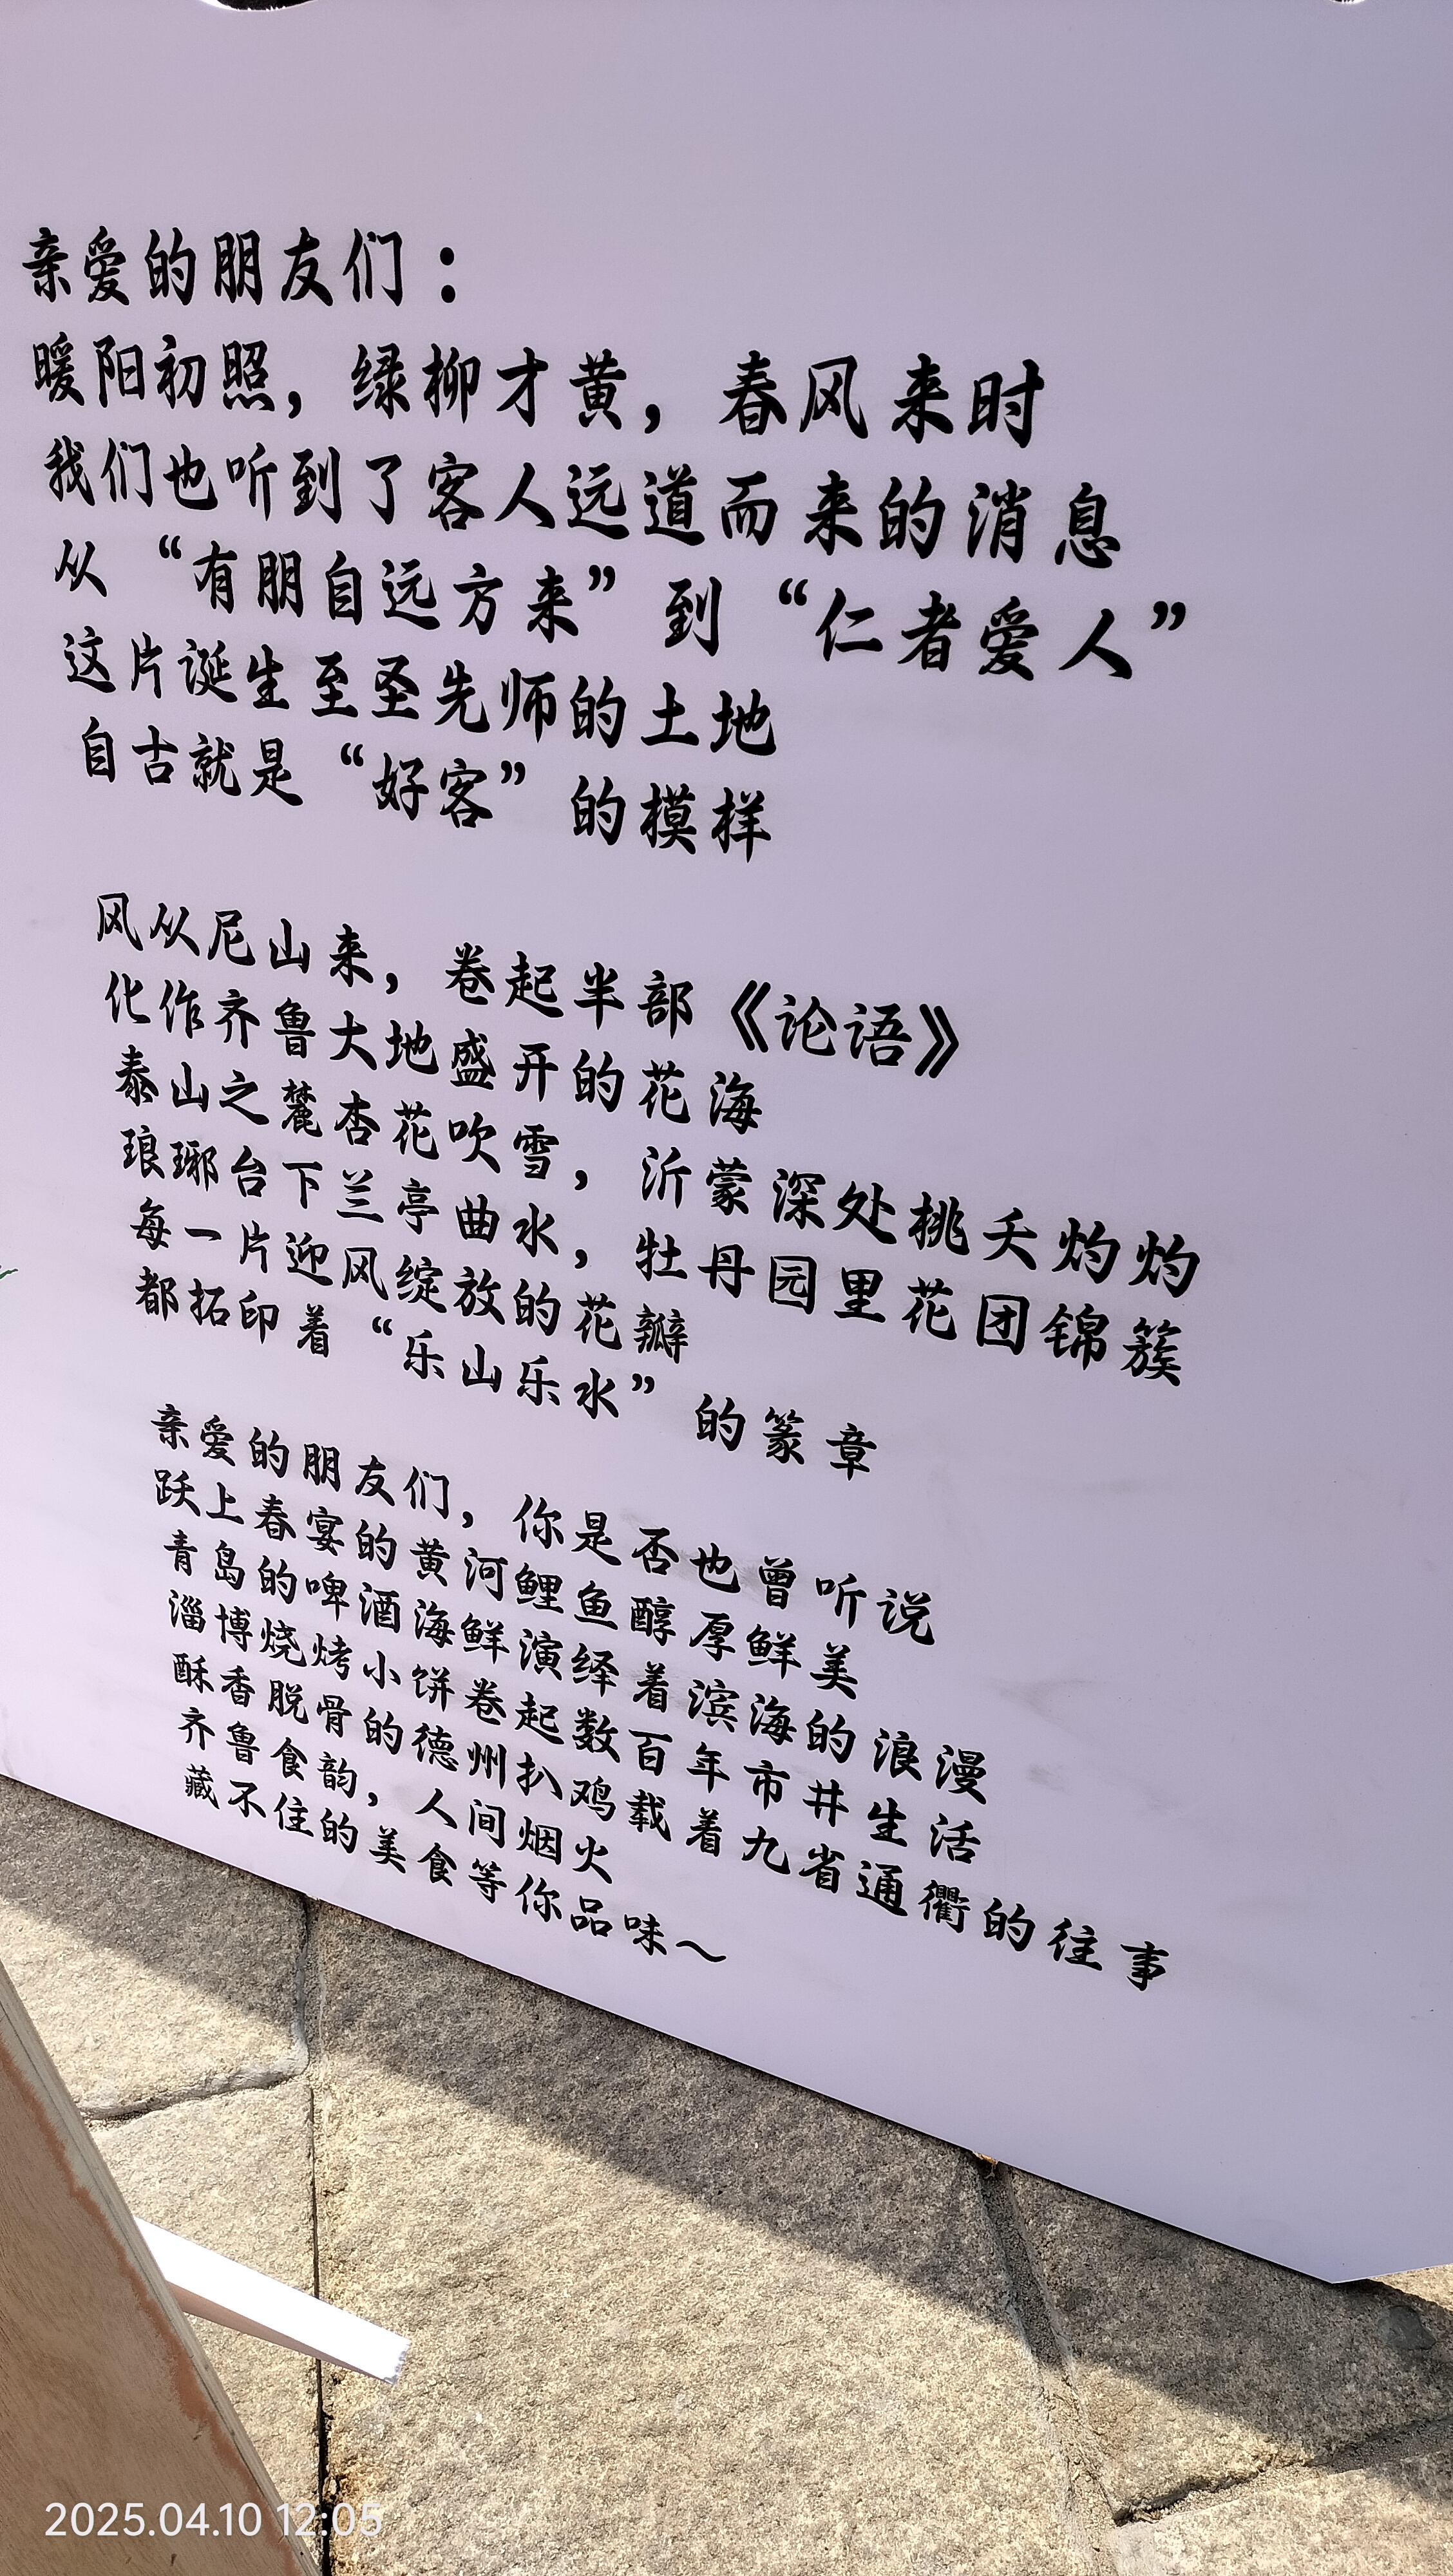 亲爱的朋友们：
暖阳初照，绿柳才黄，春风来时
我们也听到了客人远道而来的消息
从“有朋自远方来”到“仁者爱人”
这片诞生至圣先师的土地
自古就是“好客”的模样
风从尼山来，卷起半部《论语》
化作齐鲁大地盛开的花海
泰山之麓杏花吹雪，沂蒙深处桃夭灼灼
琅琊台下兰亭曲水，牡丹园里花团锦簇
每一片迎风绽放的花瓣
都拓印着“乐山乐水”的篆章
亲爱的朋友们，你是否也曾听说
跃上春宴的黄河鲤鱼醇厚鲜美
青岛的啤酒海鲜演绎着滨海的浪漫
淄博烧烤小饼卷起数百年市井生活
酥香脱骨的德州扒鸡载着九省通衢的往事
齐鲁食韵，人间烟火
藏不住的美食等你品味～
2025.04.10 12:05